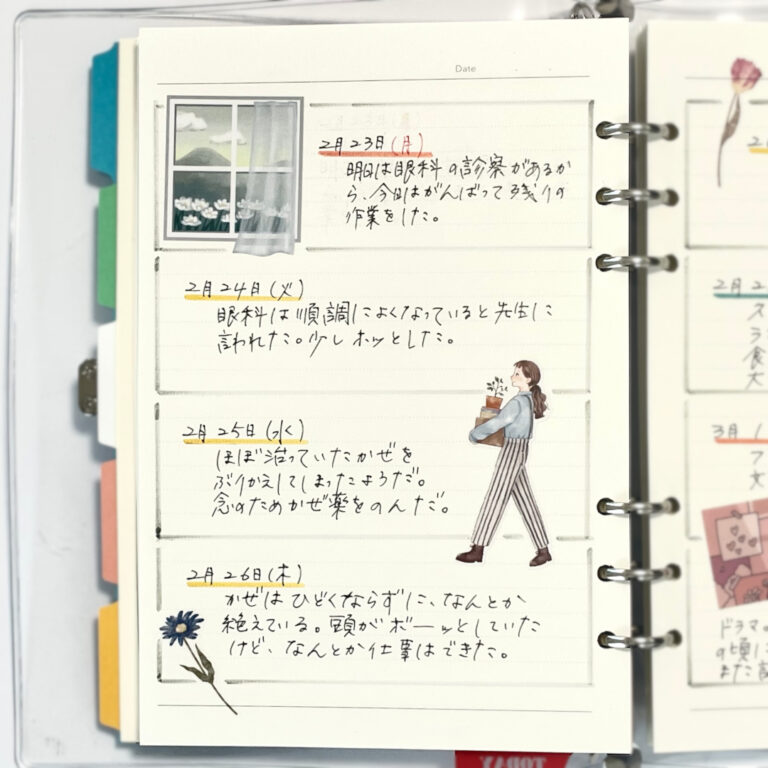 Date
2月23日(月)
明日は眼科の診察があるか
ら、今日はがんばって残りの
作業をした。
2月24日(火)
眼科は順調によくなっていると先生に
言われた。少しホッとした。
2月25日(水)
ほぼ治っていたかぜを
ぶりかえしてしまったようだ。
念のためかぜ薬をのんだ。
2月26日(木)
かぜはひどくならずに、なんとか
絶えている。頭がボーッとしていた
けど、なんとか仕事はできた。
2
2月2
ス
ラ
食
大
3月1
フ
文
ドラマの
の頃に
また
TODAY